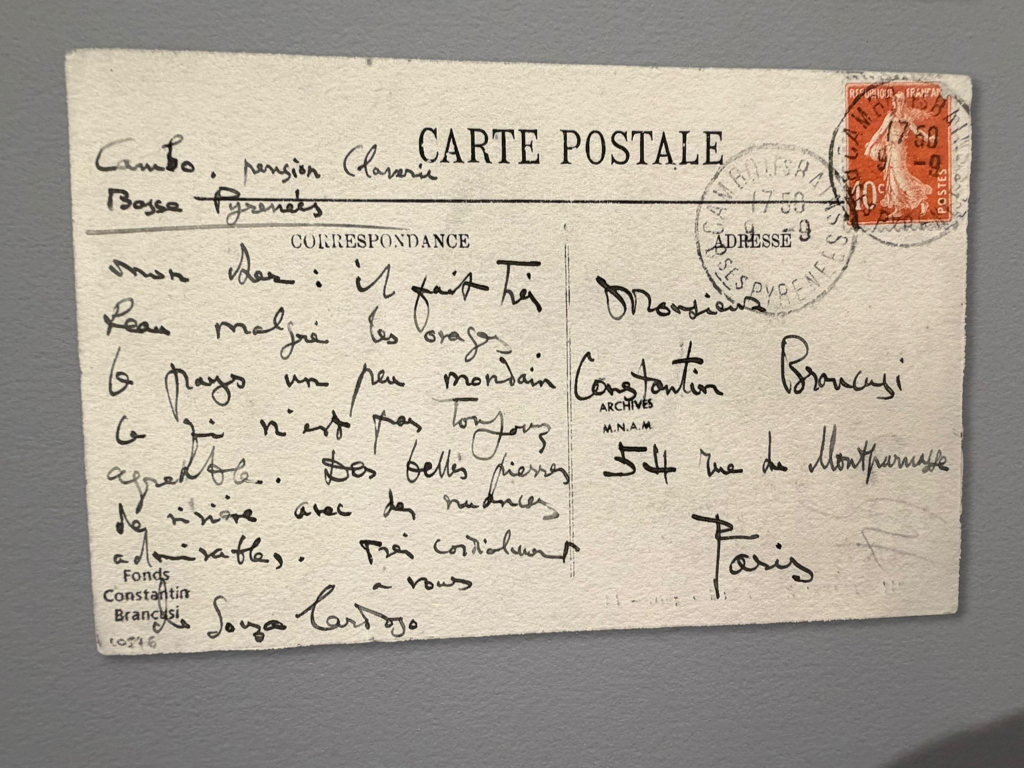 CARTE POSTALE
Cambo, pension Claverie
Basse Pyrenées
CORRESPONDANCE
mon cher : il fait très
beau malgré les orages
le pays un peu mondain
ce qi n'est pas toujours
agreable. Des belles pierres
de rivière avec des nuances
admirables. très cordialement
a vous
de Souza Cardoso
Fonds
Constantin
Brancusi
10576
ADRESSE
Monsieur
Constantin Brancusi
ARCHIVES
M.N.A.M
54 rue du Montparnasse
Paris
CAMBO LES BAINS
17 50
9 -9
BSES PYRENEES
REPUBLIQUE FRANCAISE
10c
POSTES
17 50
9 -9